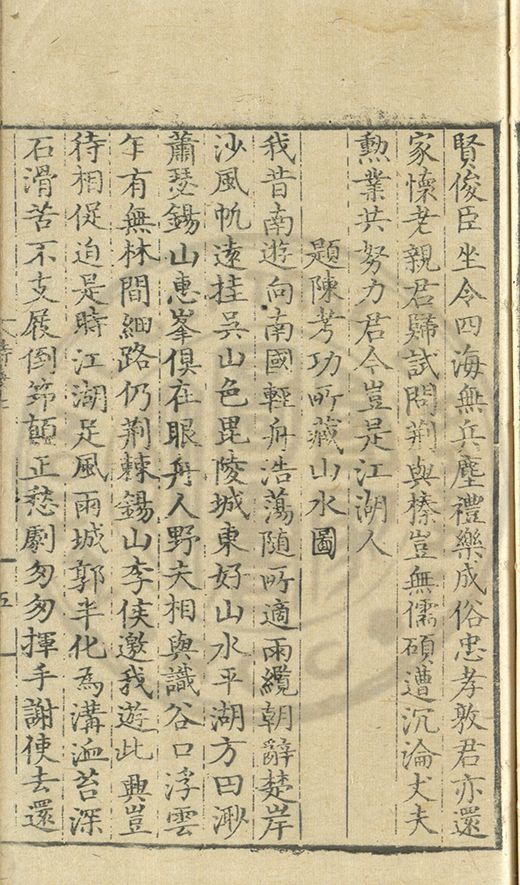 賢俊臣坐令四海無兵塵禮樂成俗忠孝敦君亦還
家懷老親君歸試問荆與榛豈無儒碩遭沉淪丈夫
勲業共努力君今豈是江湖人
題陳考功所藏山水圖
我昔南遊向南國輕舟浩蕩随所適雨纜朝辭楚岸
沙風帆遠挂吳山色毘陵城東好山水平湖方曰渺
蕭瑟錫山惠峯俱在眼舟人野夫相與識谷口浮雲
乍有無林間細路仍荆棘錫山李侯邀我遊此興豈
待相促迫是時江湖足風雨城郭半化為溝洫苔深
石滑苦不支屐倒笻顛正愁劇匆匆揮手謝使去還
五